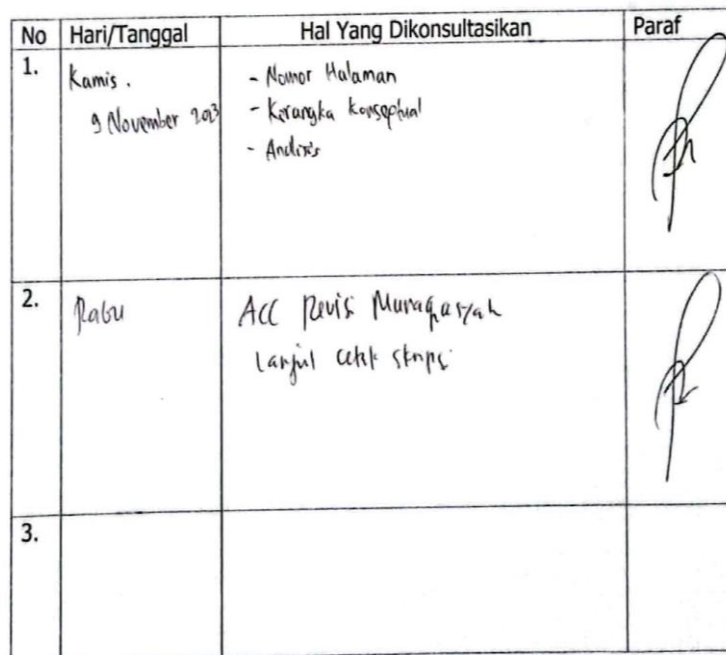 No Hari/Tanggal Hal Yang Dikonsultasikan Paraf
1.
Kamis.
9 November 2023
- Nomor Halaman
- Kerangka Konseptual
- Analisis
2.
Rabu
ACC Revisi Munaqasyah
lanjut cetak skripsi
3.